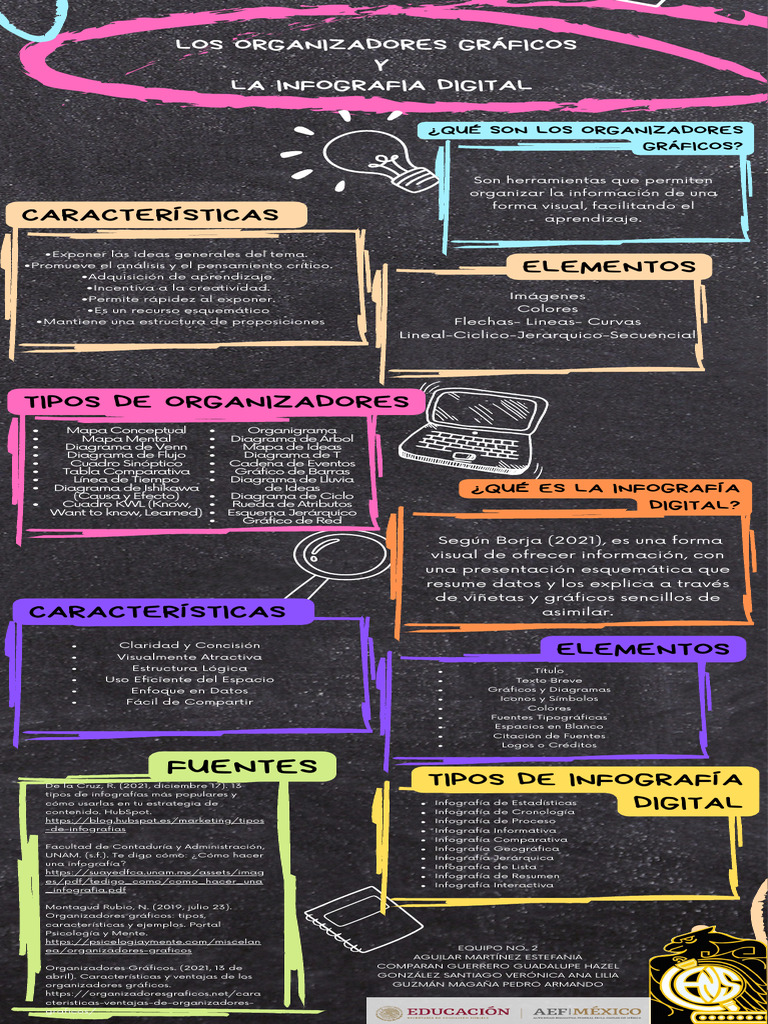 LOS ORGANIZADORES GRÁFICOS
Y
LA INFOGRAFIA DIGITAL
¿QUÉ SON LOS ORGANIZADORES
GRÁFICOS?
Son herramientas que permiten
organizar la información de una
forma visual, facilitando el
aprendizaje.
CARACTERÍSTICAS
•Exponer las ideas generales del tema.
•Promueve el análisis y el pensamiento crítico.
•Adquisición de aprendizaje.
•Incentiva a la creatividad.
•Permite rápidez al exponer.
•Es un recurso esquemático
•Mantiene una estructura de proposiciones
ELEMENTOS
Imágenes
Colores
Flechas- Lineas- Curvas
Lineal-Ciclico-Jerárquico-Secuencial
TIPOS DE ORGANIZADORES
• Mapa Conceptual
• Mapa Mental
• Diagrama de Venn
• Diagrama de Flujo
• Cuadro Sinóptico
• Tabla Comparativa
• Línea de Tiempo
• Diagrama de Ishikawa
(Causa y Efecto)
• Cuadro KWL (Know,
Want to know, Learned)
• Organigrama
• Diagrama de Árbol
• Mapa de Ideas
• Diagrama de T
• Cadena de Eventos
• Gráfico de Barras
• Diagrama de Lluvia
de Ideas
• Diagrama de Ciclo
• Rueda de Atributos
• Esquema Jerárquico
• Gráfico de Red
¿QUÉ ES LA INFOGRAFÍA
DIGITAL?
Según Borja (2021), es una forma
visual de ofrecer información, con
una presentación esquemática que
resume datos y los explica a través
de viñetas y gráficos sencillos de
asimilar.
CARACTERÍSTICAS
• Claridad y Concisión
• Visualmente Atractiva
• Estructura Lógica
• Uso Eficiente del Espacio
• Enfoque en Datos
• Fácil de Compartir
ELEMENTOS
• Título
• Texto Breve
• Gráficos y Diagramas
• Iconos y Símbolos
• Colores
• Fuentes Tipográficas
• Espacios en Blanco
• Citación de Fuentes
• Logos o Créditos
FUENTES
De la Cruz, R. (2021, diciembre 17). 13
tipos de infografías más populares y
cómo usarlas en tu estrategia de
contenido. HubSpot.
https://blog.hubspot.es/marketing/tipos
-de-infografias
Facultad de Contaduría y Administración,
UNAM. (s.f.). Te digo cómo: ¿Cómo hacer
una infografía?
https://suayedfca.unam.mx/assets/imag
es/pdf/tedigo_como/como_hacer_una
_infografia.pdf
Montagud Rubio, N. (2019, julio 23).
Organizadores gráficos: tipos,
características y ejemplos. Portal
Psicología y Mente.
https://psicologiaymente.com/miscelan
ea/organizadores-graficos
Organizadores Gráficos. (2021, 13 de
abril). Características y ventajas de los
organizadores gráficos.
https://organizadoresgraficos.net/cara
cteristicas-ventajas-de-organizadores-
graficos/
TIPOS DE INFOGRAFÍA
DIGITAL
• Infografía de Estadísticas
• Infografía de Cronología
• Infografía de Proceso
• Infografía Informativa
• Infografía Comparativa
• Infografía Geográfica
• Infografía Jerárquica
• Infografía de Lista
• Infografía de Resumen
• Infografía Interactiva
EQUIPO NO. 2
AGUILAR MARTÍNEZ ESTEFANIA
COMPARAN GUERRERO GUADALUPE HAZEL
GONZÁLEZ SANTIAGO VERÓNICA ANA LILIA
GUZMÁN MAGAÑA PEDRO ARMANDO
EDUCACIÓN
AEFMÉXICO
ENS